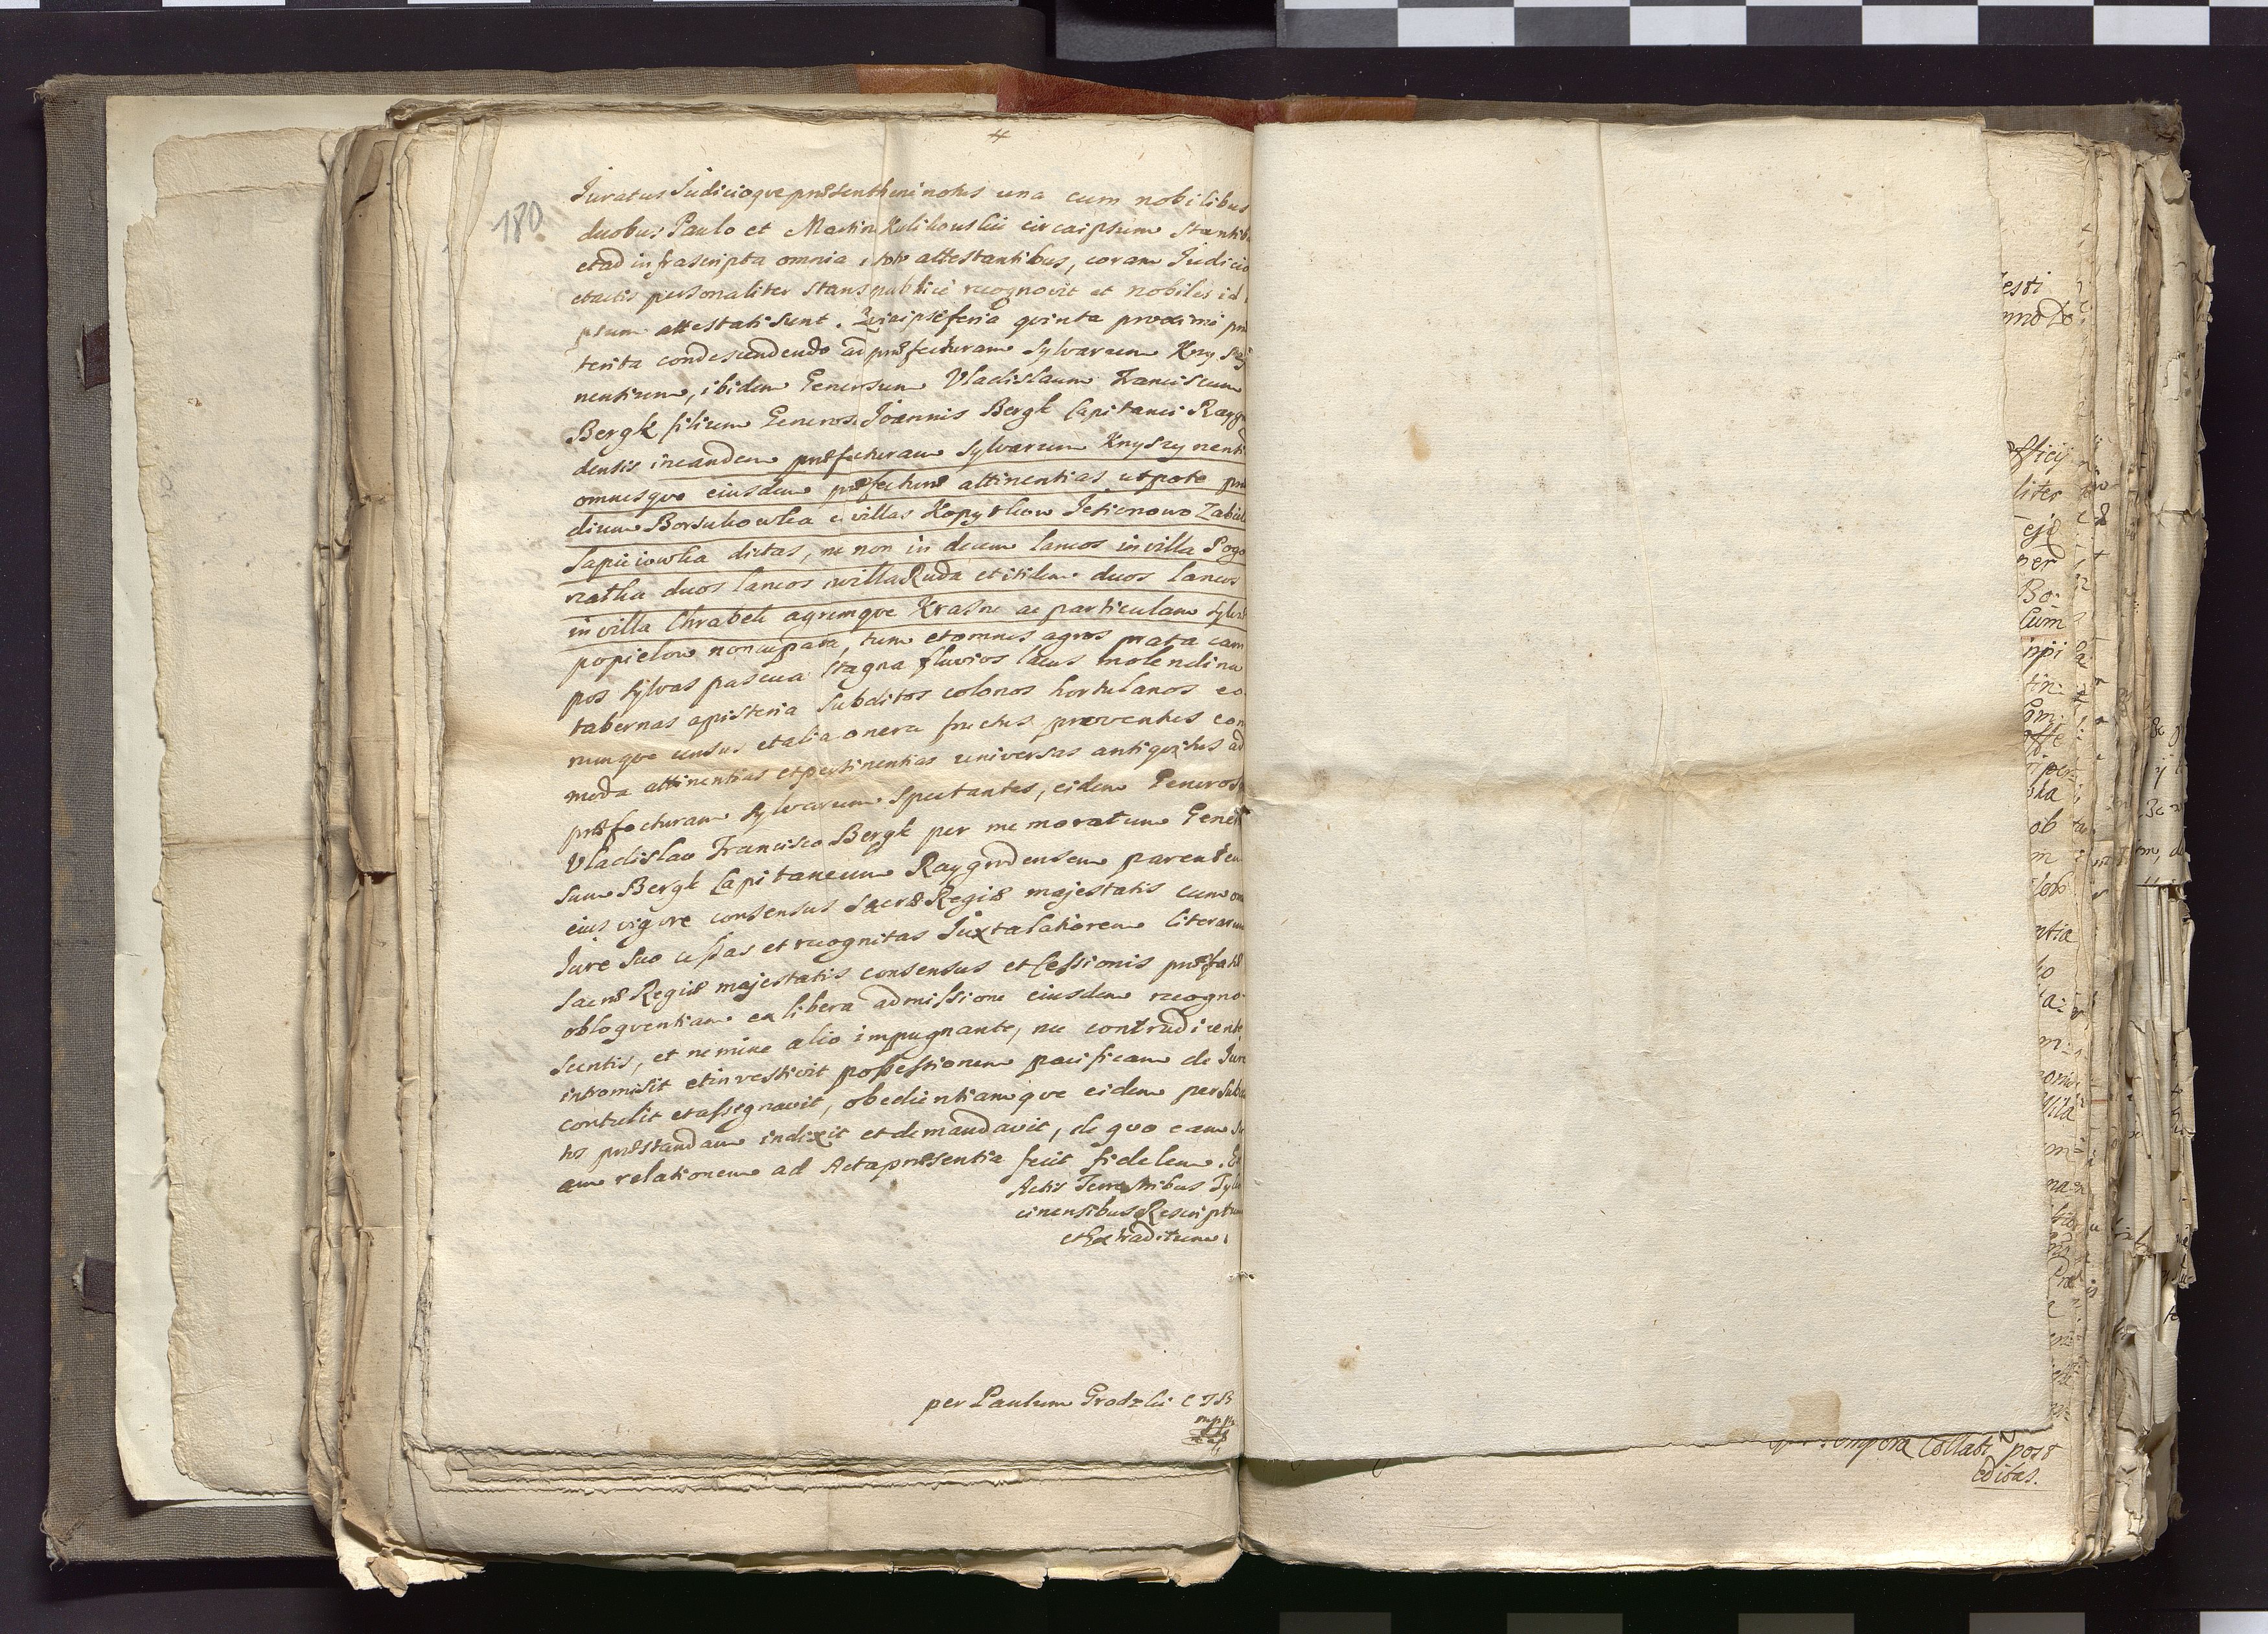 4
180.
Juratus Judicioque præsenti bene notus una cum nobilibus
duobus Paulo et Martin Kulikowskii circa ipsum Stantib
et ad infrascripta omnia attestantibus, coram Judicio
etactis personaliter Stans publice recognovit et nobiles id i
psum attestati sunt. Quia ipse feria quinta proxime præ
terita condescendendo ad præfecturam Sylvarum Knyszy
nentium, ibidem Generosum Vladislaum Franciscum
Bergk filium Generosi Joannis Bergk Capitanei Raygro
densis in eandem præfecturam Sylvarum Knyszynenti
omnesque eiusdem præfecturæ attinentias utpote præ
dium Borsukowka e villas Kopytkow Jesionowo Zabiele
Lapiciowka dictas, nec non in decem laneos in villa Pogo
rzalka duos laneos in villa Ruda et itidem duos laneos
in villa Chrabeli agrumque Krasne ac particulam Sylvæ
popielow noncupata, tum et omnes agros prata cam
pos Sylvas pascua Stagna fluvios lacus molendina
tabernas apisteria Subditos colonos hortulanos eo
rumque census et alia onera fructus proventus com
moda attinentias et pertinentias universas antiquitus ad
præfecturam Sylvarum Spectantes, eidem Generoso
Vladislao Francisco Bergk per memoratum Genero
sum Bergk Capitaneum Raygrodensem parentem
eius vigore consensus Sacræ Regiæ majestatis cum omi
Jure Suo cessas et recognitas Juxta latiorem literarum
Sacræ Regiæ majestatis consensus et Cessionis præfatæ
obloquentiam ex libera admissione eiusdem recogno
scentis, et nemine alio impugnante, nec contradicente,
intromisit et investivit possessionem pacificam de Jure
contulit et assignavit, obedientiamque eidem per Subdi
tos præstandam indixit et demandavit, de quo eam Su
am relationem ad Acta præsentia fecit fidelem. Ex
Actis Terrestribus Tyko
cinensibus Rescriptum
et Extraditum.
per Paulum Grodzki C T B
mpp
esti
nno Do
fficij
liter
ner
Bo-
cum
ob
ntiæ
tempora Collati post
editas.